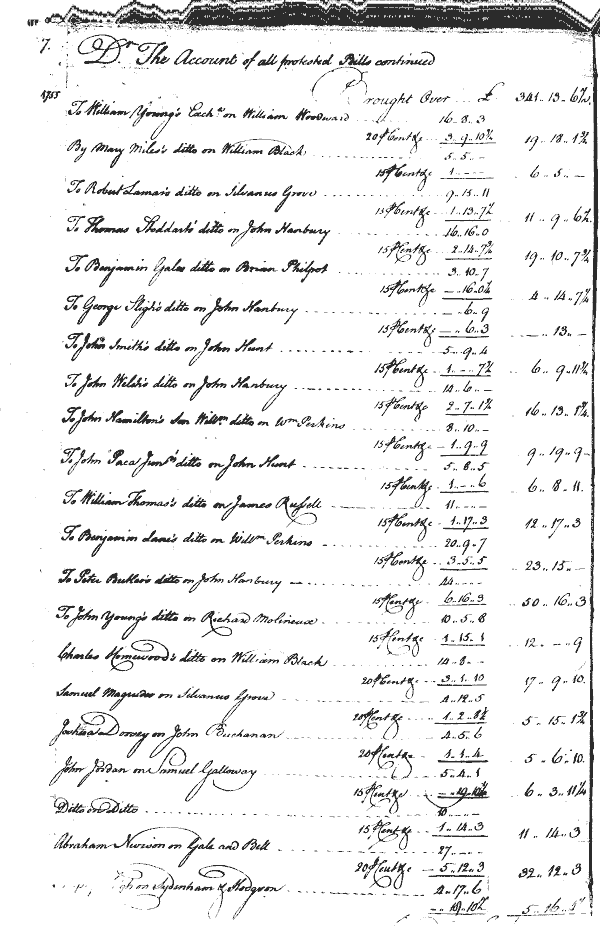 7. Dr The Account of all protested Bills continued
Brought Over £ 341.. 13.. 6½
1755
To William Young's Exch.a on William Woodward 16.. 8.. 3
20 ₱ Cent &c 3.. 9.. 10½ 19.. 18.. 1½
By Mary Miles's ditto on William Black 5.. 5.. —
15 ₱ Cent &c 1.. — 6.. 5.. —
To Robert Lamar's ditto on Silvanus Grove 9.. 15.. 11
15 ₱ Cent &c 1.. 13.. 7½ 11.. 9.. 6½
To Thomas Stoddart's ditto on John Hanbury 16.. 16.. 0
15 ₱ Cent &c 2.. 14.. 7½ 19.. 10.. 7½
To Benjamin Gales ditto on Brian Philpot 3.. 10.. 7
15 ₱ Cent &c —.. 16.. 0½ 4.. 14.. 7½
To George Sligh's ditto on John Hanbury —.. 6.. 9
15 ₱ Cent &c —.. 6.. 3 —.. 13.. —
To John Smith's ditto on John Hunt 5.. 9.. 4
15 ₱ Cent &c 1.. —.. 7½ 6.. 9.. 11½
To John Welsh's ditto on John Hanbury 14.. 6.. —
15 ₱ Cent &c 2.. 7.. 1½ 16.. 13.. 1¼
To John Hamilton's Son Willm ditto on Wm Perkins 8.. 10.. —
15 ₱ Cent &c 1.. 9.. 9 9.. 19.. 9
To John Paca Junrs ditto on John Hunt 5.. 8.. 5
15 ₱ Cent &c 1.. —.. 6 6.. 8.. 11
To William Thomas's ditto on James Russell 11.. —
15 ₱ Cent &c 1.. 17.. 3 12.. 17.. 3
To Benjamin Lane's ditto on Willm Perkins 20.. 9.. 7
15 ₱ Cent &c 3.. 5.. 5 23.. 15.. —
To Peter Butler's ditto on John Hanbury 44.. —
15 ₱ Cent &c 6.. 16.. 3 50.. 16.. 3
To John Young's ditto on Richard Molineux 10.. 5.. 8
15 ₱ Cent &c 1.. 15.. 1 12.. —.. 9
Charles Homewood's ditto on William Black 14.. 8.. —
20 ₱ Cent &c 3.. 1.. 10 17.. 9.. 10
Samuel Magruder on Silvanus Grove 4.. 12.. 5
20 ₱ Cent &c 1.. 2.. 8½ 5.. 15.. 1½
Joshua Dorsey on John Buchanan 4.. 5.. 6
20 ₱ Cent &c 1.. 1.. 4 5.. 6.. 10
John Jordan on Samuel Galloway 5.. 4.. 1
15 ₱ Cent &c —.. 19.. 10¼ 6.. 3.. 11¼
Ditto on Ditto 10.. —
15 ₱ Cent &c 1.. 14.. 3 11.. 14.. 3
Abraham Newson on Gale and Bell 27.. —
20 ₱ Cent &c 5.. 12.. 3 32.. 12.. 3
on Sydenham & Hodgson 4.. 17.. 6
—.. 18.. 10½ 5.. 16..